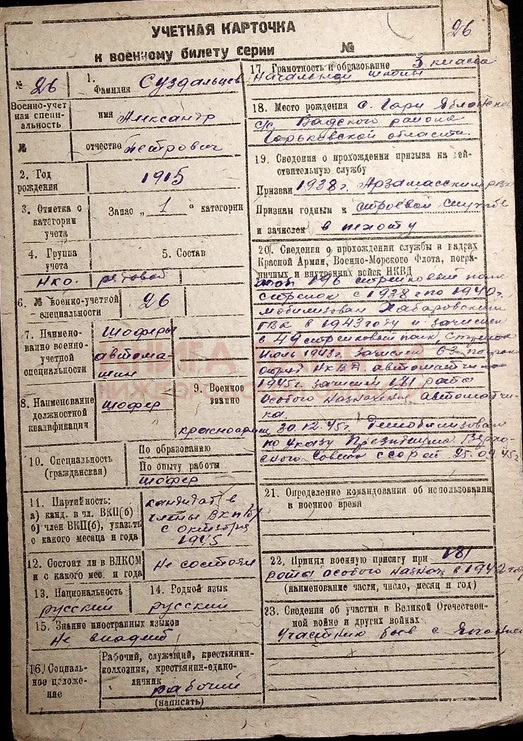 УЧЕТНАЯ КАРТОЧКА
к военному билету серии №
26
№ 26
Военно-учетная специальность
№
1.
Фамилия Суздальцев
имя Александр
отчество Петрович
2. Год рождения
1915
3. Отметка о категории учета
Запас „1“ категории
4. Группа учета
5. Состав
рядовой
6. № военно-учетной специальности
26
7. Наименование военно-учетной специальности
Шоферы автомашин
8. Наименование должностной квалификации
шофер
9. Военное звание
красноармеец
10. Специальность (гражданская)
По образованию
По опыту работы
шофер
11. Партийность:
а) канд. в чл. ВКП(б)
б) член ВКП(б), указать с какого месяца и года
кандидат в члены ВКП(б)
с октября
1945
12. Состоит ли в ВЛКСМ и с какого мес. и года
Не состоял
13. Национальность
русский
14. Родной язык
русский
15. Знание иностранных языков
Не владеет
16. Социальное положение
Рабочий, служащий, крестьянин-колхозник, крестьянин-единоличник
рабочий
(написать)
17. Грамотность и образование 3 класса
начальной школы
18. Место рождения с.
с/с Вадского района
Горьковской области
19. Сведения о прохождении призыва на действительную службу
Призван 1938г. Арзамасским РВК
Признан годным к строевой службе
и зачислен в пехоту
20. Сведения о прохождении службы в кадрах Красной Армии, Военно-Морского Флота, пограничных и внутренних войск НКВД
196 стрелковый полк
стрелок с 1938г по 1940г.
мобилизован Хабаровским
ГВК в 1943 году и зачислен
в 49 стрелковый полк,
Июль 1943г. зачислен
НКВД автоматчик
1945г. зачислен 181 рота
особого назначения автоматчика.
30.12.45г. Демобилизован
по указу Президиума Верховного
Совета СССР от 25.09.45г.
21. Определение командования об использовании в военное время
22. Принял военную присягу при 181
рота особого назнач. в 1942 году
(наименование части, число, месяц и год)
23. Сведения об участии в Великой Отечественной войне и других войнах
Участник боев с Японией